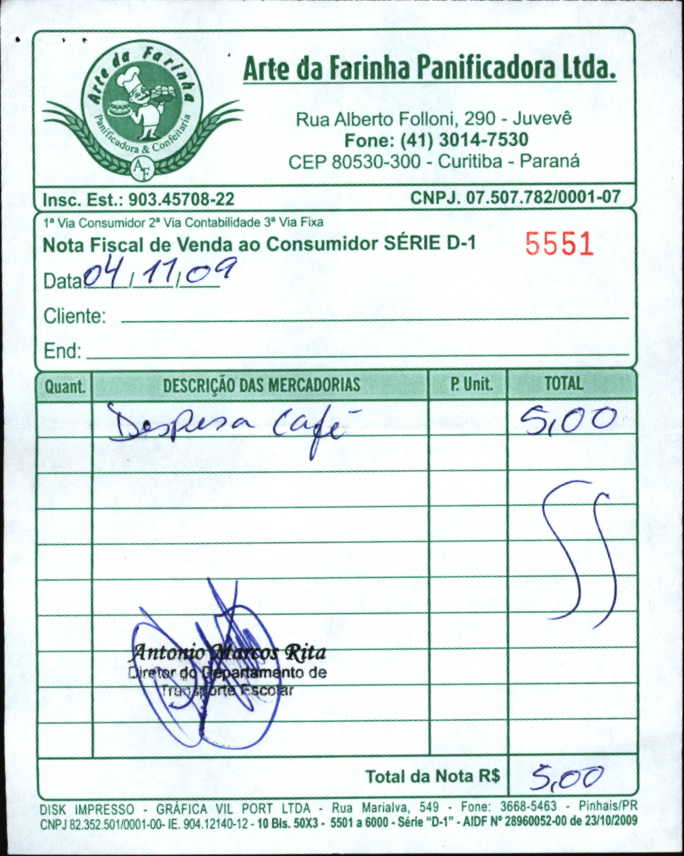 Arte da Farinha
Panificadora & Confeitaria
AF
Arte da Farinha Panificadora Ltda.
Rua Alberto Folloni, 290 - Juvevê
Fone: (41) 3014-7530
CEP 80530-300 - Curitiba - Paraná
Insc. Est.: 903.45708-22 CNPJ. 07.507.782/0001-07
1ª Via Consumidor 2ª Via Contabilidade 3ª Via Fixa
Nota Fiscal de Venda ao Consumidor SÉRIE D-1 5551
Data 04/11/09
Cliente:
End:
Quant. DESCRIÇÃO DAS MERCADORIAS P. Unit. TOTAL
Despesa Café 5,00
Antonio Marcos Rita
Diretor do Departamento de
Transporte Escolar
Total da Nota R$ 5,00
DISK IMPRESSO - GRÁFICA VIL PORT LTDA - Rua Marialva, 549 - Fone: 3668-5463 - Pinhais/PR
CNPJ 82.352.501/0001-00- IE. 904.12140-12 - 10 Bls. 50X3 - 5501 a 6000 - Série "D-1" - AIDF Nº 28960052-00 de 23/10/2009